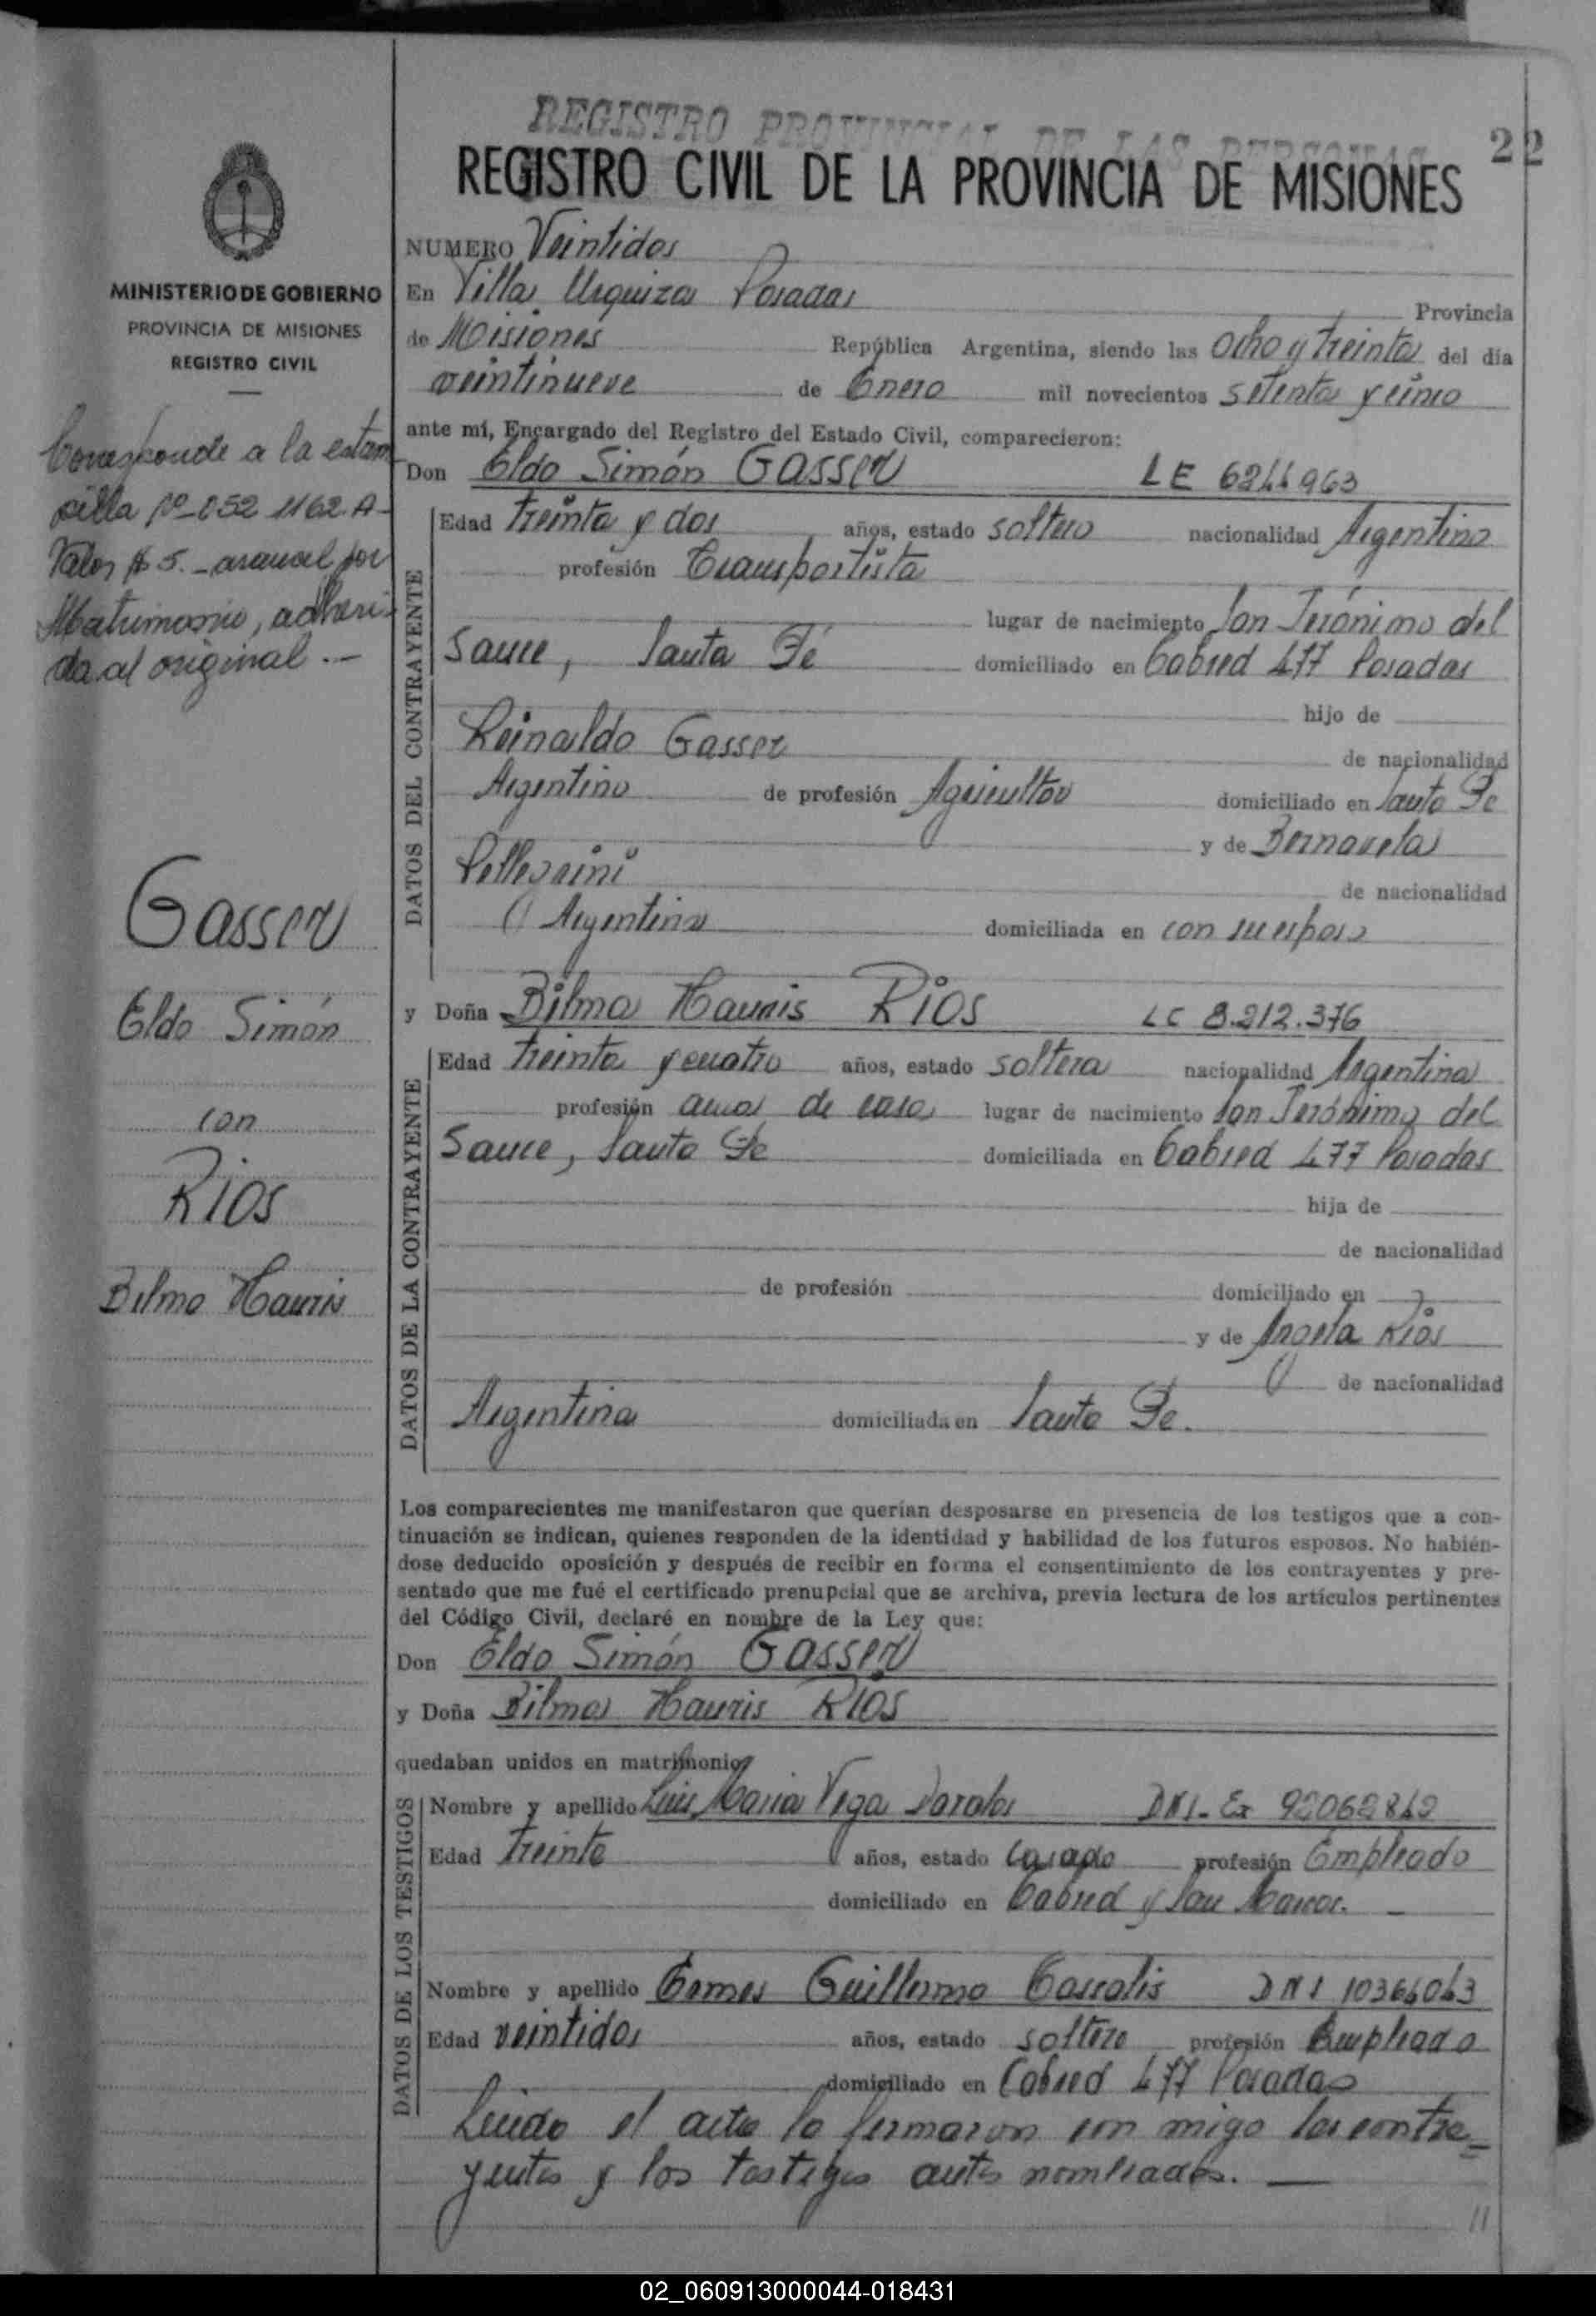 REGISTRO PROVINCIAL DE LAS PERSONAS
22
REGISTRO CIVIL DE LA PROVINCIA DE MISIONES
MINISTERIO DE GOBIERNO
PROVINCIA DE MISIONES
REGISTRO CIVIL
Corresponde a la estam
pilla Nº 052 1162 A-
Valor $ 5.- arancel por
Matrimonio, adheri-
da al original.-
Gasser
Eldo Simón
con
RIOS
Bilma Hauris
NUMERO Veintidos
En Villa Urquiza Posadas Provincia
de Misiones República Argentina, siendo las ocho y treinta del día
veintinueve de Enero mil novecientos setenta y cinco
ante mí, Encargado del Registro del Estado Civil, comparecieron:
Don Eldo Simón GASSER LE 6244963
DATOS DEL CONTRAYENTE
Edad treinta y dos años, estado soltero nacionalidad Argentina
profesión Transportista
lugar de nacimiento San Jerónimo del
Sauce, Santa Fé domiciliado en Cabred 477 Posadas
hijo de
Reinaldo Gasser de nacionalidad
Argentino de profesión Agricultor domiciliado en Santa Fe
y de Bernarda
Pellegrini de nacionalidad
Argentina domiciliada en con su esposo
y Doña Bilma Hauris RIOS LC 8.212.376
DATOS DE LA CONTRAYENTE
Edad treinta y cuatro años, estado soltera nacionalidad Argentina
profesión ama de casa lugar de nacimiento San Jerónimo del
Sauce, Santa Fe domiciliada en Cabred 477 Posadas
hija de
de nacionalidad
de profesión domiciliado en
y de Angela Rios
de nacionalidad
Argentina domiciliada en Santa Fe.
Los comparecientes me manifestaron que querían desposarse en presencia de los testigos que a con-
tinuación se indican, quienes responden de la identidad y habilidad de los futuros esposos. No habién-
dose deducido oposición y después de recibir en forma el consentimiento de los contrayentes y pre-
sentado que me fué el certificado prenupcial que se archiva, previa lectura de los artículos pertinentes
del Código Civil, declaré en nombre de la Ley que:
Don Eldo Simón GASSER
y Doña Bilma Hauris RIOS
quedaban unidos en matrimonio
DATOS DE LOS TESTIGOS
Nombre y apellido Luis Maria Vega DNI- Ex 92062842
Edad treinta años, estado casado profesión Empleado
domiciliado en Cabred y San Marcos.
Nombre y apellido Guillermo DNI 10364043
Edad veintidos años, estado soltero profesión Empleado
domiciliado en Cabred 477 Posadas
Leida el acta la firmaron con migo los contra-
yentes y los testigos antes nombrados.
02_060913000044-018431